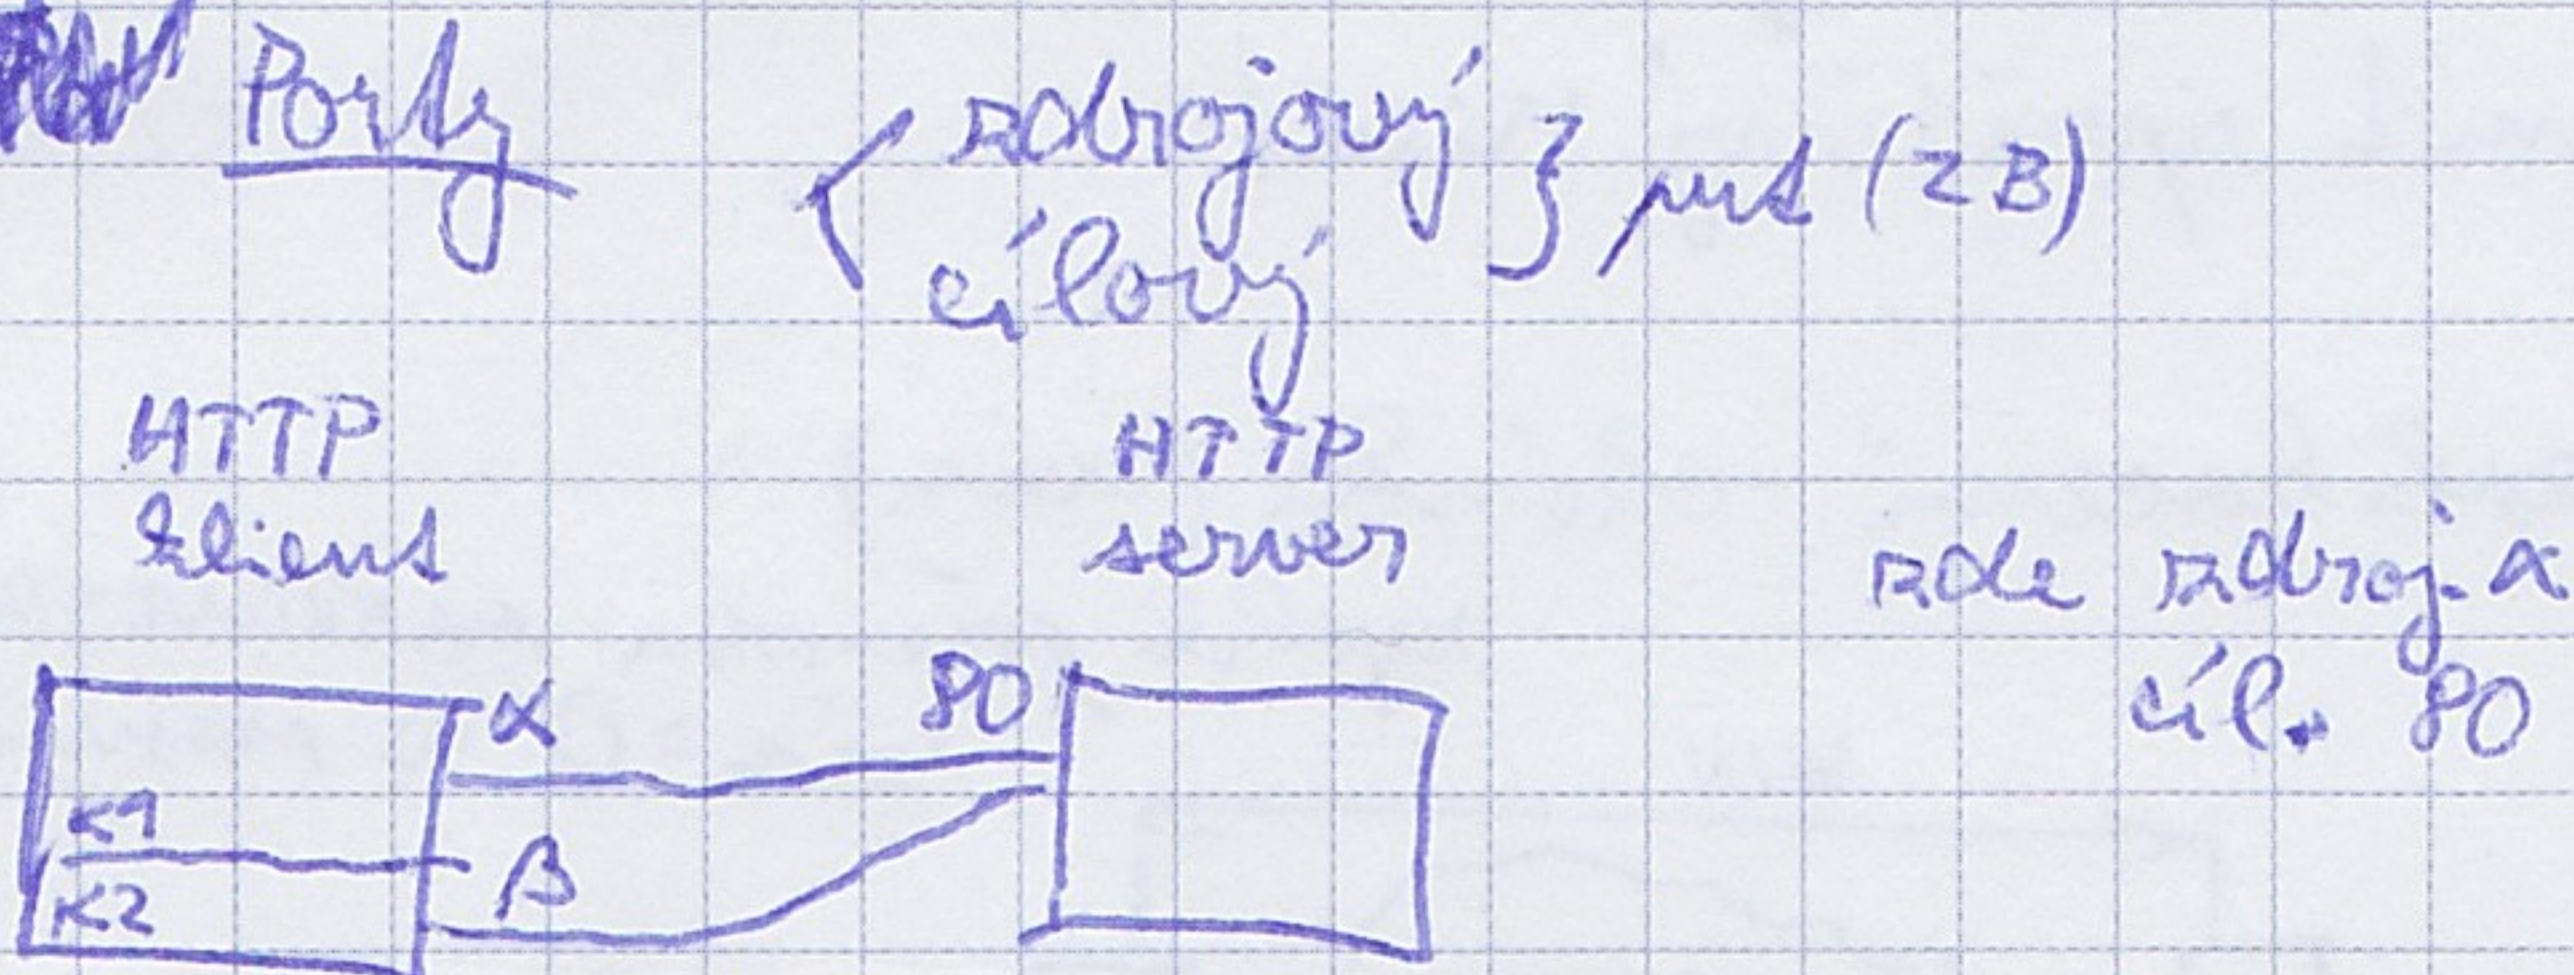 Porty
zdrojový
cílový
} (2B)
HTTP
klient
HTTP
server
zde zdroj. α
cíl. 80
α
80
K1
K2
β